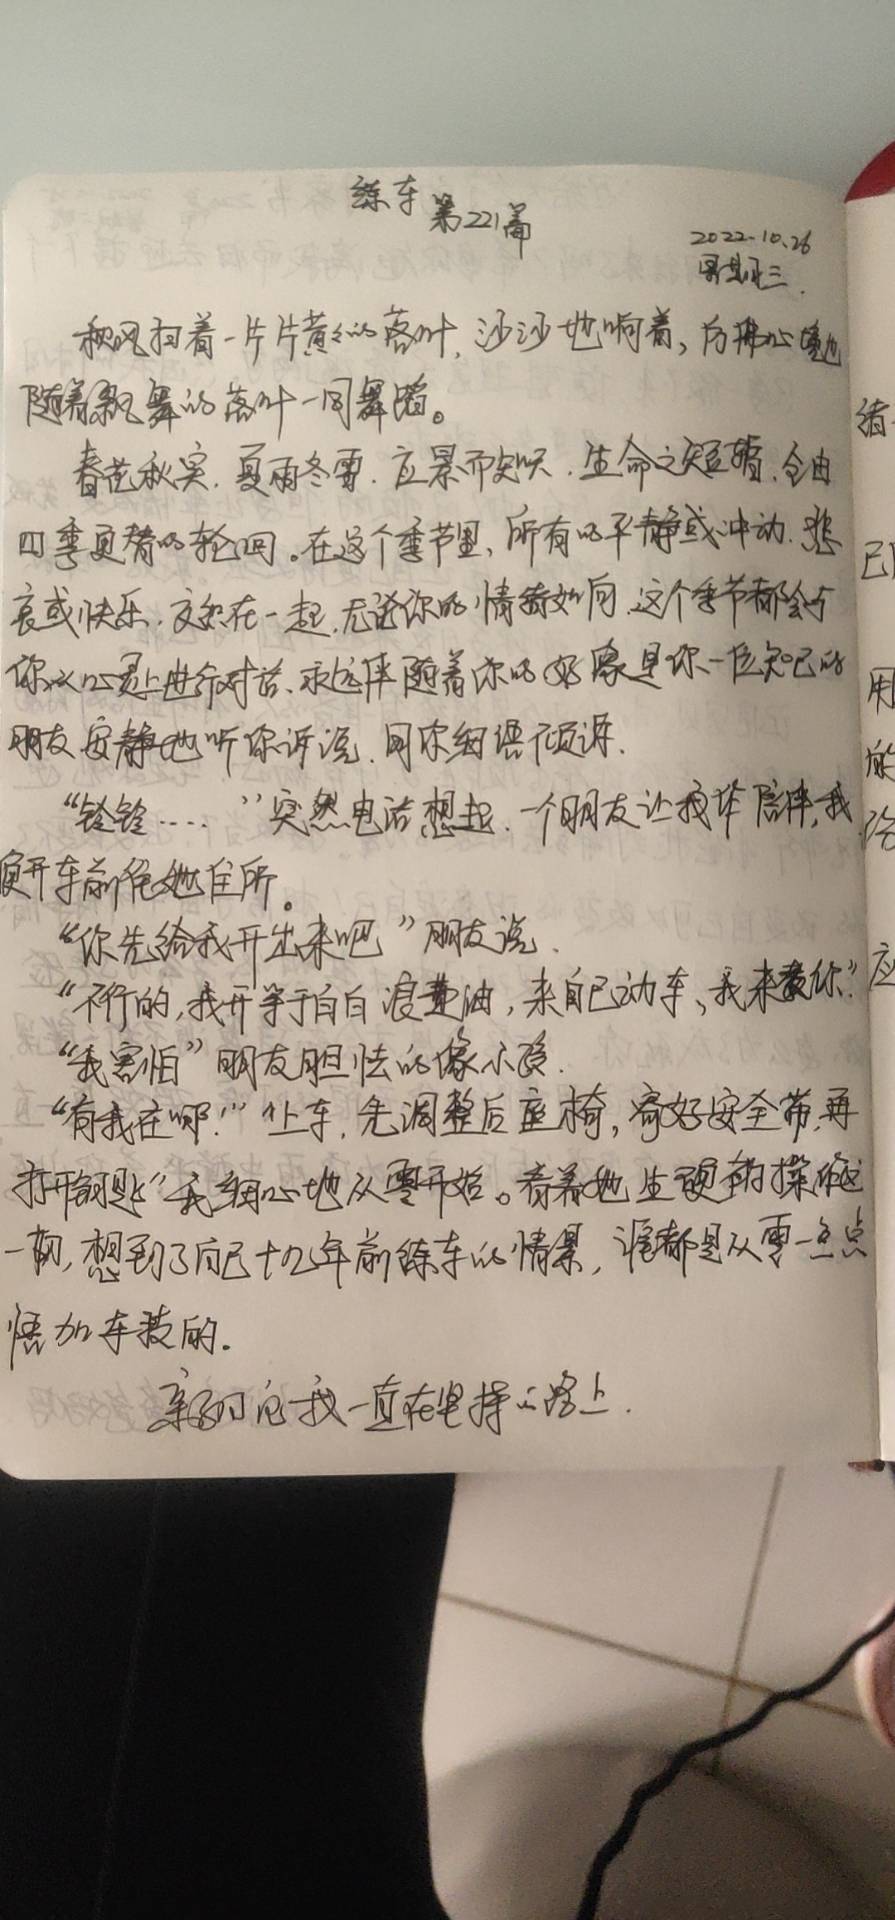 练车 第221篇
2022.10.26
星期三.
秋风扫着一片片黄黄的落叶,沙沙地响着,仿拂心境也
随着飘舞的落叶一同舞蹈。
春花秋实.夏雨冬雪.应景而 .生命之短暂.全由
四季更替的轮回。在这个季节里、所有的平静或冲动.悲
哀或快乐.交织在一起.无论你的情绪如何.这个季节都会与
你从心灵上进行对话、永远伴随着你的好象是你一位知己的
朋友安静地听你诉说.同你细语倾诉.
“铃铃.....”突然电话想起.一个朋友让我 陪伴,我
便开车前往她住所。
“你先给我开出来吧”朋友说.
“不行的,我开等于白白浪费油,来自己动车、我来教你.”
“我害怕”朋友胆怯的像小孩.
“有我在哪!”“上车,先调整后座椅,寄好安全带,再
打开钥匙”我细心地从零开始。看着她生硬的操作这
一切,想到了自己十九年前练车的情景,谁都是从零一点点
悟加车技的.
亲子日记我一直在坚持的路上.
猪
已
用
的
应